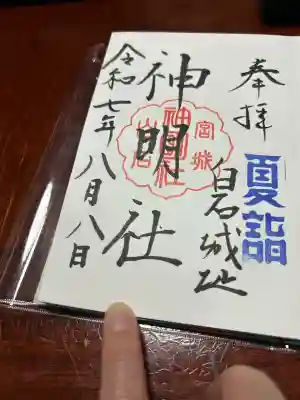 奉拝
夏詣
白石城址
宮城
神明社
白石
神明社
令和七年八月八日